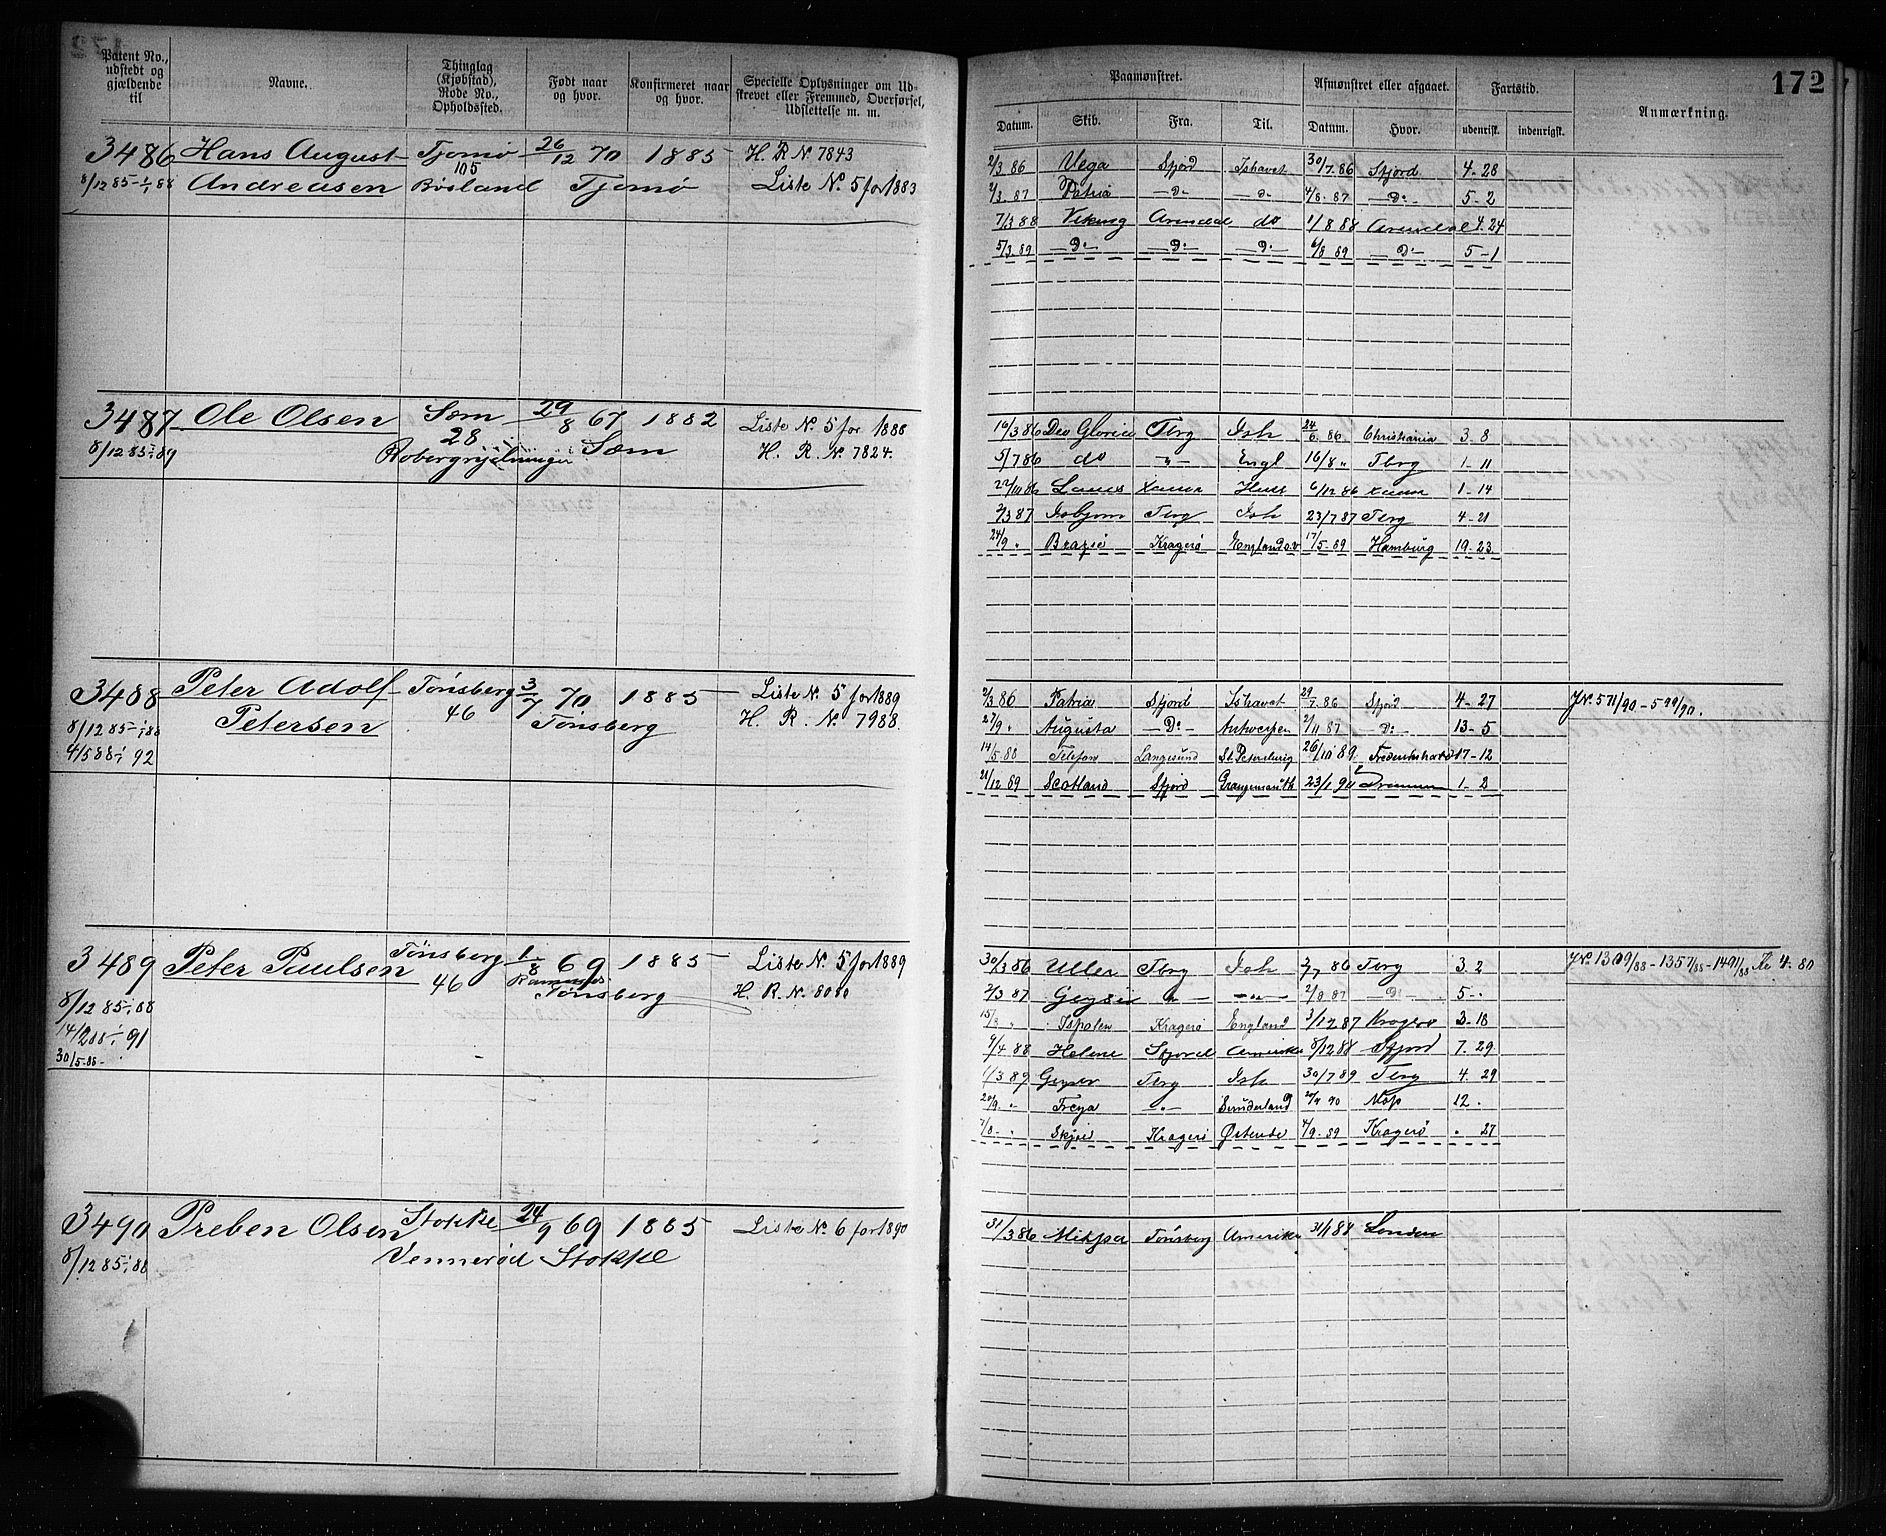 172
Patent No., udstedt og gjældende til
Navne.
Thinglag (Kjøbstad), Rode No., Opholdssted.
Født naar og hvor.
Konfirmeret naar og hvor.
Specielle Oplysninger om Udskrevet eller Fremmed, Overførsel, Udslettelse m. m.
Paamønstret.
Afmønstret eller afgaaet.
Fartstid.
Anmærkning.
Datum. Skib. Fra. Til. Datum. Hvor. udenrisk. indenrigsk.
3486 Hans August Tjømø 26/12 70 1885 H. R. N. 7843
105
8/12 85-1/1 88 Andreasen Bøsland Tjømø Liste No. 5 for 1883
2/3 86 Vega Sfjord Ishavet 30/7.86 Sfjord 4-28
2/3.87 Patria —D— —D— 4/8.87 —D— 5-2
7/3 88 Viking Arendal do 1/8 88 Arendal 4.24
5/3.89 —D— —D— —D— 6/8 89 —D— 5-1
3487 Ole Olsen Sæm 29/8 67 1882 Liste No. 5 for 1888
28
8/12 85-1/1 89 Sæm H. R. No. 7824.
16/3 86 Deo Gloria Tbrg Ish 24/6.86 Christiania 3.8
5/7 86 do —"— Engl 16/8 " Tbrg 1-11
22/10 86 6/12 86 1-14
2/3 87 Isbjørn Tbrg Ish 23/7 87 Tbrg 4-21
24/9 " Kragerø England o.v. 17/5-89 Hamburg 19-23
3488 Peter Adolf Tønsberg 3/7 70 1885 Liste No. 5 for 1889
46
8/12 85-1/1 88 Petersen Tønsberg H. R. No. 7988.
4/5 88-1/1 92
2/3 86 Patria Sfjord Ishavet 29/7.86 Sfjord 4-27 J.No. 571/90-599/90.
27/9 " Augusta —D— Antwerpen 2/11 87 —D— 13-5
14/5-88 Telefon Langesund St. Petersburg 26/10 89 Frederikshald 17-12
21/12 89 Scotland Sfjord Grangemouth 23/1 90 Drammen 1-2
3489 Peter Paulsen Tønsberg 1/8 69 1885 Liste No. 5 for 1889
46 Ramnes
Tønsberg H. R. No. 8080
8/12 85-1/1 88
14/2 88-1/1 91
30/5-88-
30/3 86 Uller Tbrg Ish 2/7 86 Tbrg 3.2 J.No. 1309/88-1357/88-1491/88
2/3 87 Geysir —"— —"— 2/8 87 —D— 5-.
15/8 " Ispolen Kragerø England 3/12 87 Kragerø 3-18
9/4 88 Helene Sfjord Amerika 8/12 88 Sfjord 7.29.
1/3 89 Geyser Tbrg Ish 30/7 89 Tbrg 4.29
20/9.- Freya —"— Sunderland 12.
Kragerø Østende 4/9-89 Kragerø . 27
3490 Preben Olsen Stokke 24/9 69 1885 Liste No. 6 for 1890
8/12 85-1/1 88 Vennerød Stokke
31/3 86 Mizpa Tønsberg Amerika 31/1 88 London